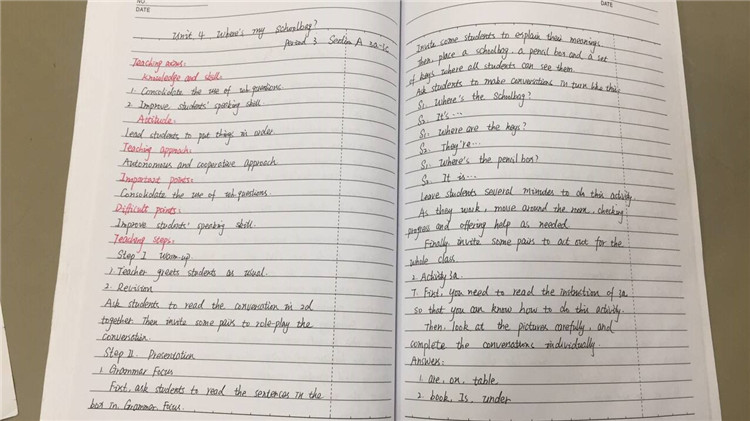 NO.
DATE
Unit 4 Where's my schoolbag?
Period 3 Section A 3a-3c
Teaching aims:
Knowledge and skill:
1. Consolidate the use of wh-questions.
2. Improve students' speaking skill.
Attitude:
Lead students to put things in order
Teaching approach:
Autonomous and cooperative approach
Important points:
Consolidate the use of wh-questions.
Difficult points:
Improve students' speaking skill.
Teaching steps:
Step I Warm-up
1. Teacher greets students as usual.
2. Revision
Ask students to read the conversation in 2d
together. Then invite some pairs to role-play the
conversation.
Step II. Presentation
1. Grammar Focus
First, ask students to read the sentences in the
box in Grammar Focus.
DATE
Invite some students to explain their meanings.
Then place a schoolbag, a pencil box and a set
of keys where all students can see them.
Ask students to make conversations in turn like this:
S1: Where's the schoolbag?
S2: It's...
S1: Where are the keys?
S2: They're...
S1: Where's the pencil box?
S2: It is...
Leave students several minutes to do this activity.
As they work, move around the room, checking
progress and offering help as needed.
Finally invite some pairs to act out for the
whole class.
2. Activity 3a.
T: First, you need to read the instruction of 3a
so that you can know how to do this activity.
Then, look at the pictures carefully, and
complete the conversations individually.
Answers:
1. are, on, table
2. book, Is, under